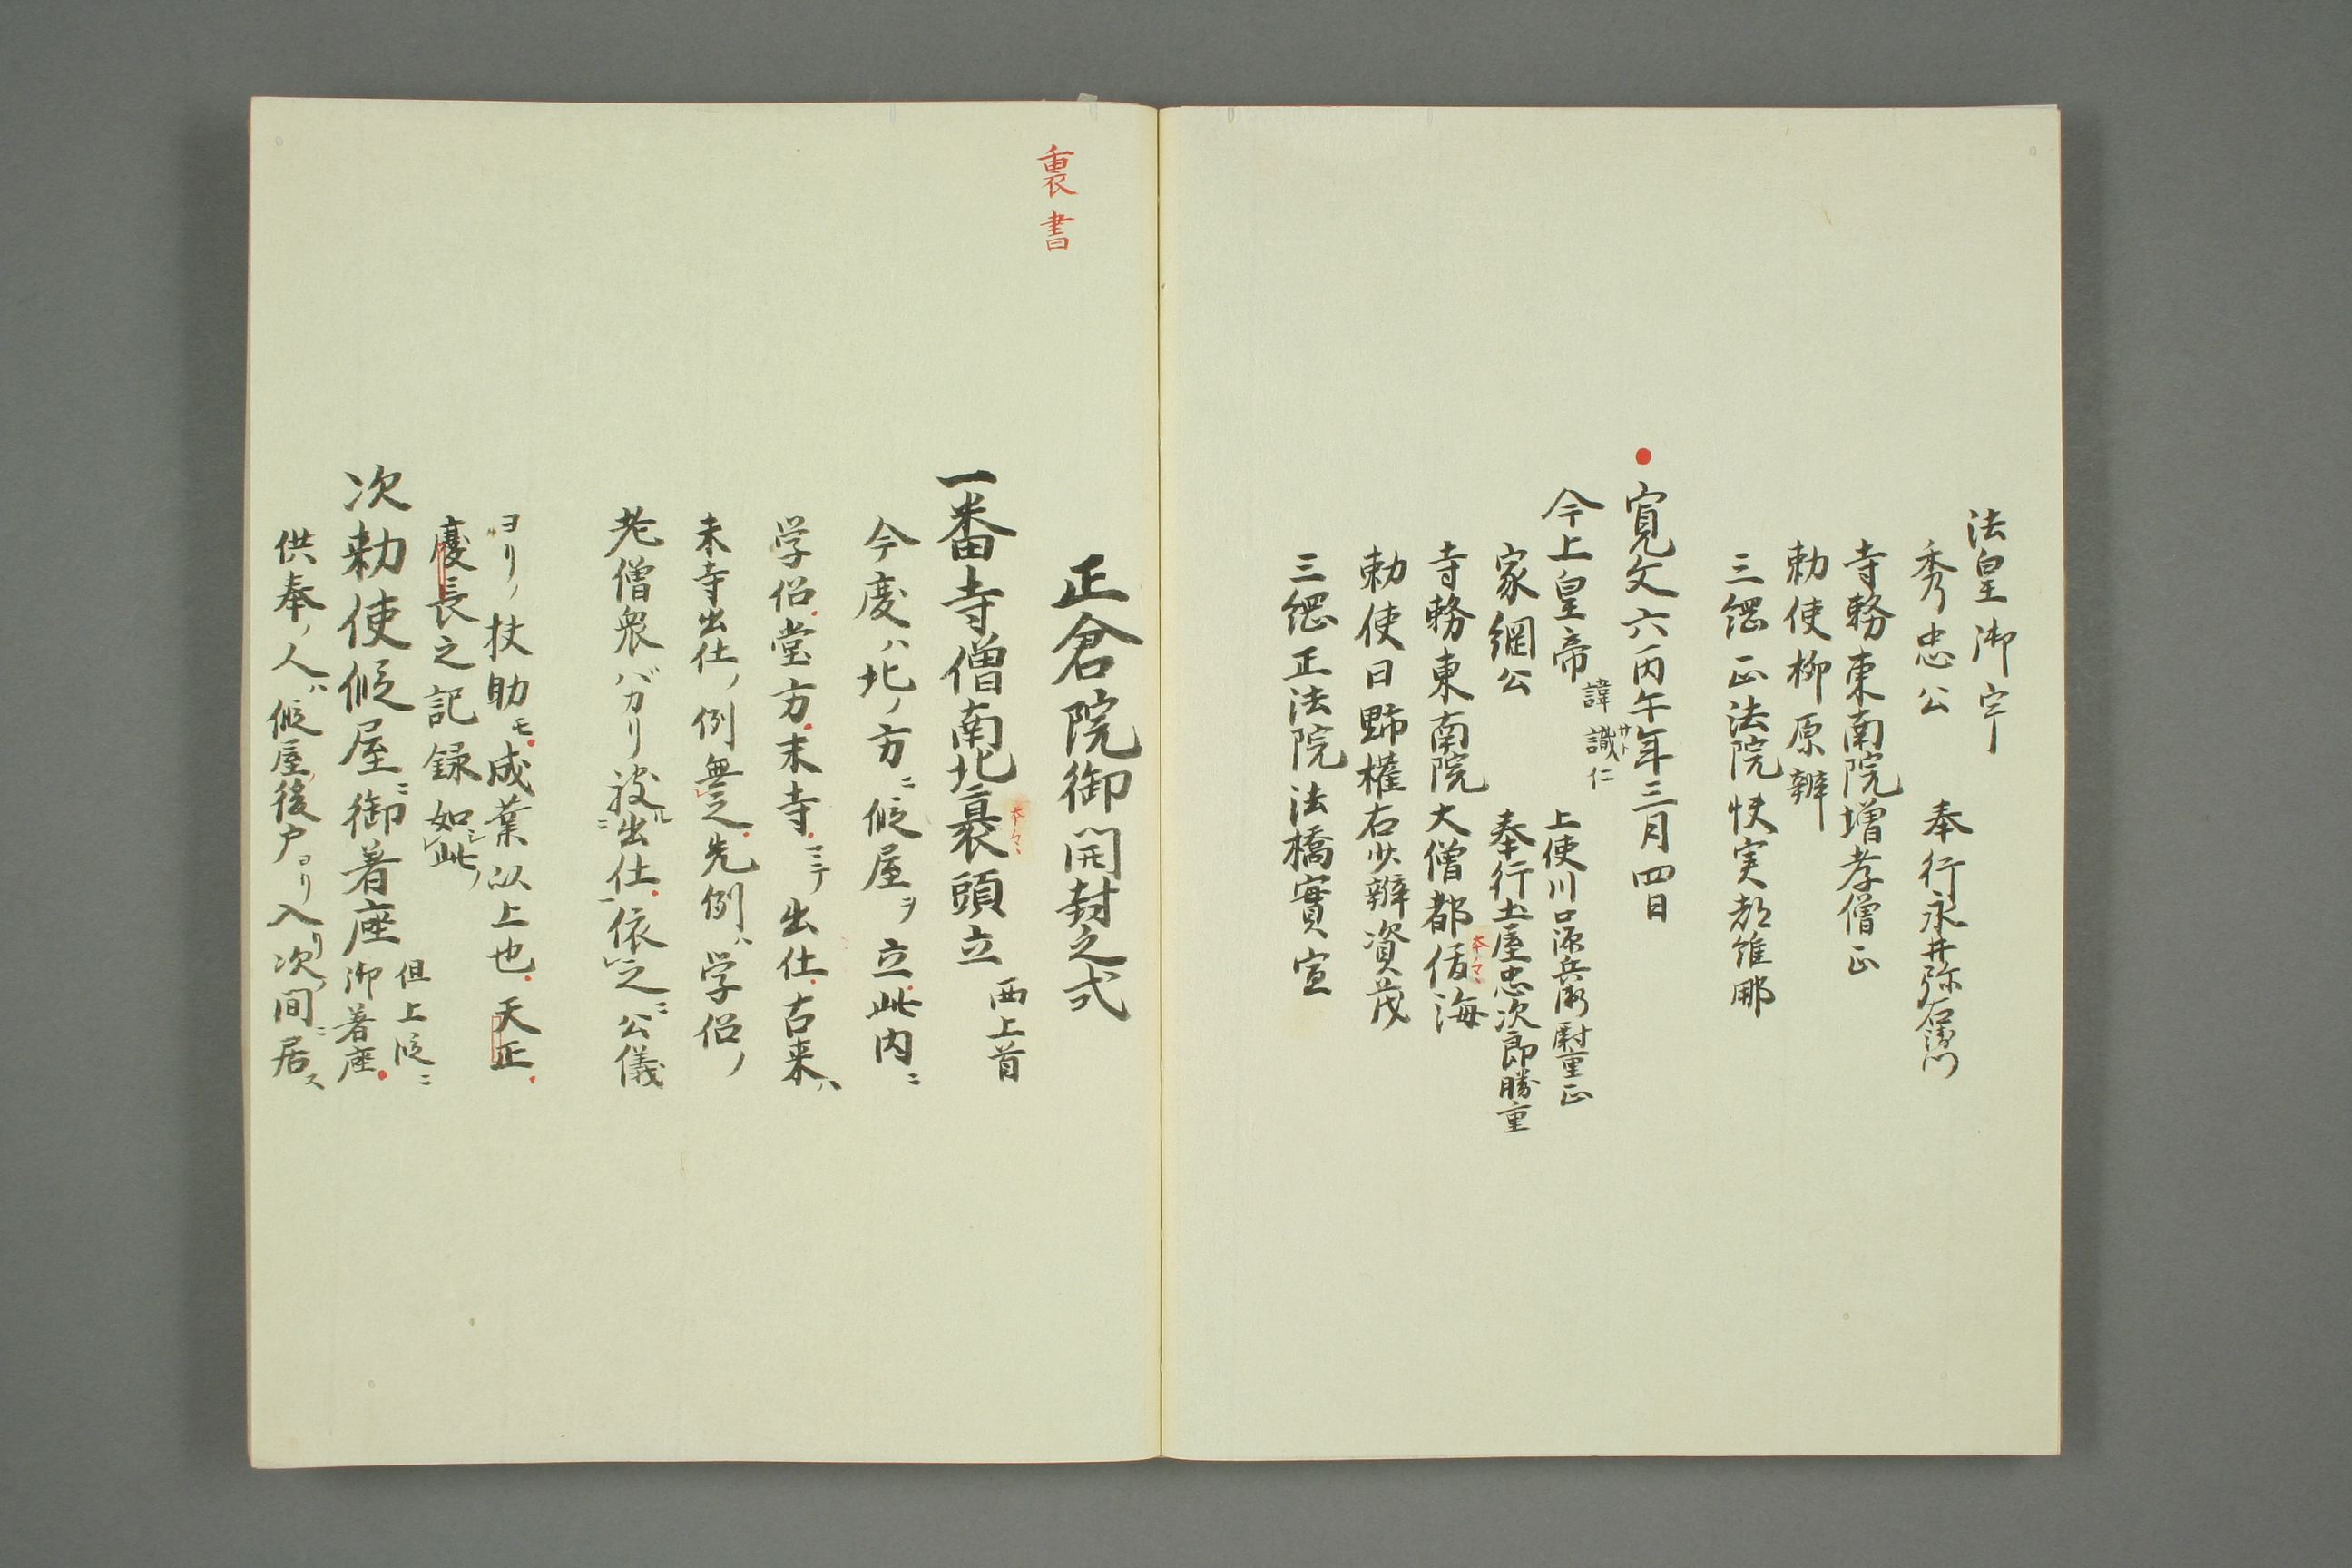 法皇御宇
秀忠公 奉行永井弥右衛門
寺務東南院増孝僧正
勅使柳原辨
三綱正法院快実都維那
寛文六丙午年三月四日
今上皇帝 諱識仁 上使川口源兵衛尉重正
サト
家綱公 奉行土屋忠次郎勝重
寺務東南院大僧都 海
本マヽ
勅使日野権右少辨資茂
三綱正法院法橋實宣
裏書
正倉院御開封之式
一番寺僧南北裹頭立 西上首
本々ヽ
今度ハ北ノ方ニ假屋ヲ立此内ニ
学侶堂方末寺ミテ出仕古来ハ
末寺出仕ノ例無之先例ハ学侶ノ
老僧衆バガリ被ルニ出仕一依レ之ニ公儀
ヨリノ扶助モ成葉以上也天正
慶長之記録如シレ此ノ
次勅使假屋ニ御着座 但上段ニ御着座
供奉ノ人ハ假屋ノ後戸ヨリ入リ次ノ間ニ居ス